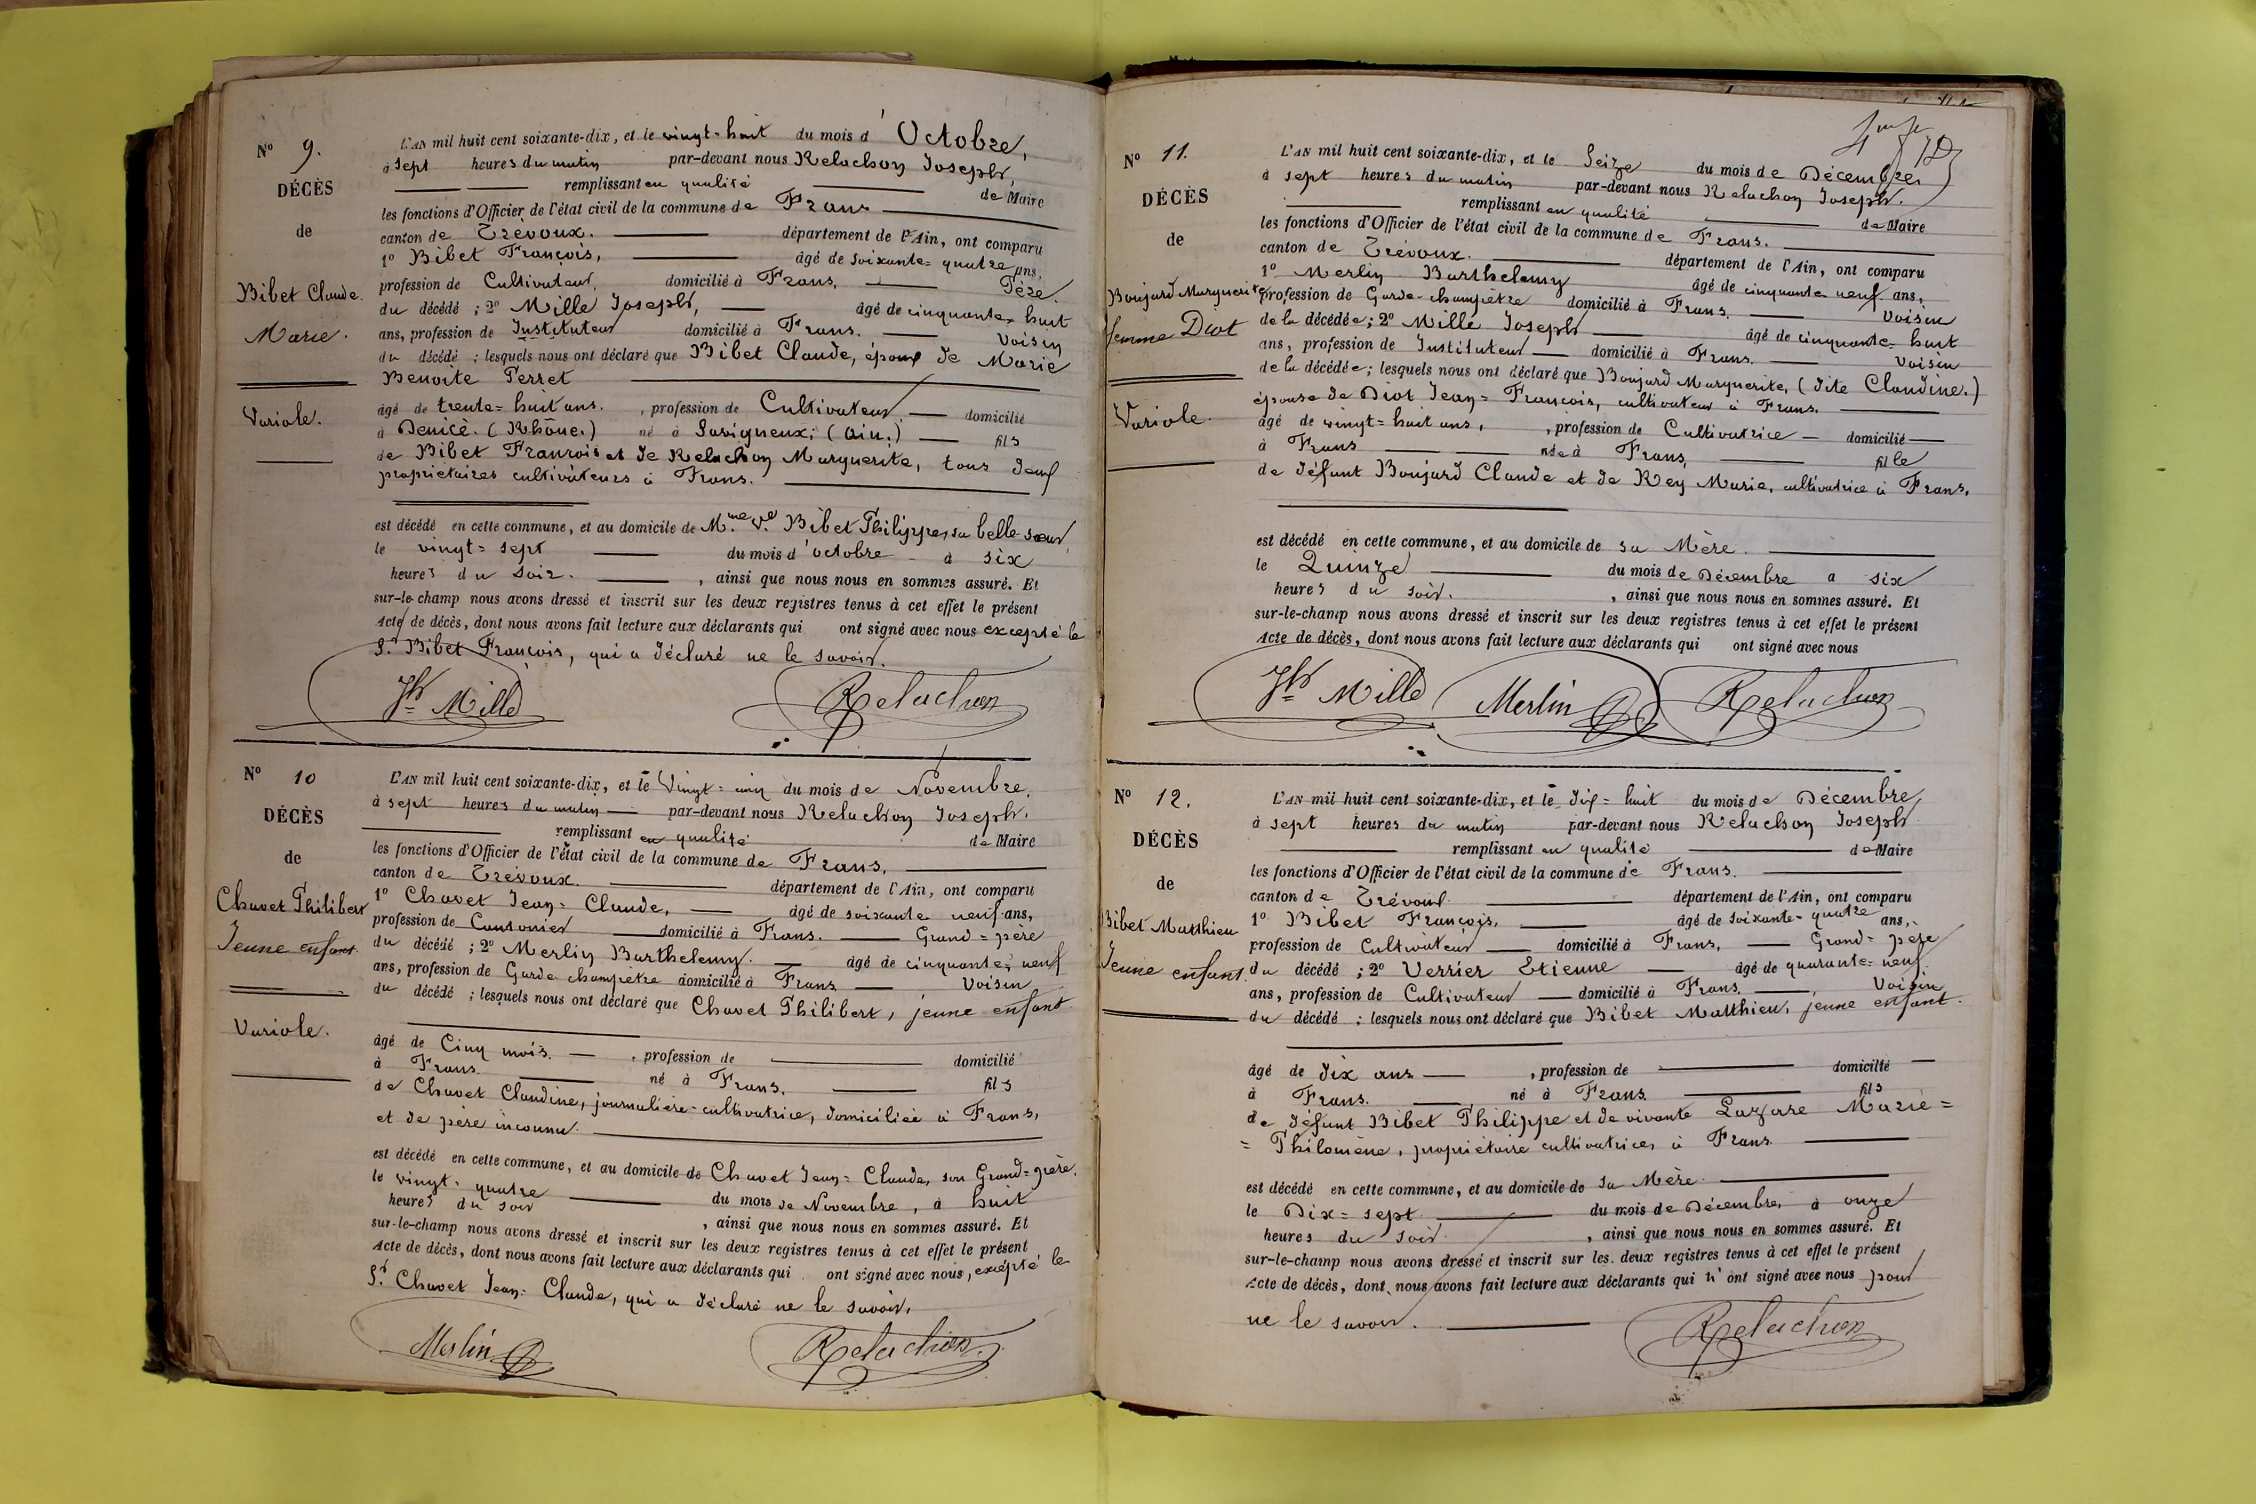 N° 9.
DÉCÈS
de
Bibet Claude
Marie.
Variole.
L'AN mil huit cent soixante-dix, et le vingt=huit du mois d'Octobre,
à sept heures du matin par-devant nous Relachon Joseph,
remplissant en qualité de Maire
les fonctions d'Officier de l'état civil de la commune de Frans
canton de Trévoux. département de l'Ain, ont comparu
1° Bibet François, âgé de soixante=quatre ans,
profession de Cultivateur, domicilié à Frans, Père.
du décédé ; 2° Mille Joseph, âgé de cinquante=huit
ans, profession de Instituteur domicilié à Frans. Voisin
du décédé ; lesquels nous ont déclaré que Bibet Claude, époux de Marie
Benoite Perret
âgé de trente=huit ans. , profession de Cultivateur, domicilié
à Denicé. (Rhône.) né à Savigneux; (Ain.) fils
de Bibet François et de Relachon Marguerite, tous deux
propriétaires cultivateurs à Frans.
est décédé en cette commune, et au domicile de Mme Ve Bibet Philippe, sa belle-sœur,
le vingt=sept du mois d'octobre à six
heures du soir. , ainsi que nous nous en sommes assuré. Et
sur-le-champ nous avons dressé et inscrit sur les deux registres tenus à cet effet le présent
Acte de décès, dont nous avons fait lecture aux déclarants qui ont signé avec nous excepté le
Sr Bibet François, qui a déclaré ne le savoir.
Jh Mille Relachon
N° 10
DÉCÈS
de
Chavet Philibert
Jeune enfant.
Variole.
L'AN mil huit cent soixante-dix, et le Vingt=cinq du mois de Novembre,
à sept heures du matin par-devant nous Relachon Joseph,
remplissant en qualité de Maire
les fonctions d'Officier de l'état civil de la commune de Frans,
canton de Trévoux. département de l'Ain, ont comparu
1° Chavet Jean=Claude, âgé de soixante neuf ans,
profession de Cantonier domicilié à Frans. Grand=père
du décédé ; 2° Merlin Barthelemy. âgé de cinquante=neuf
ans, profession de Garde champêtre domicilié à Frans Voisin
du décédé ; lesquels nous ont déclaré que Chavet Philibert, jeune enfant
âgé de Cinq mois. , profession de domicilié
à Frans. né à Frans, fils
de Chavet Claudine, journalière=cultivatrice, domiciliée à Frans,
et de père inconnu.
est décédé en cette commune, et au domicile de Chavet Jean=Claude, son Grand=père,
le vingt=quatre du mois de Novembre, à huit
heures du soir , ainsi que nous nous en sommes assuré. Et
sur-le-champ nous avons dressé et inscrit sur les deux registres tenus à cet effet le présent
Acte de décès, dont nous avons fait lecture aux déclarants qui ont signé avec nous, excépté le
Sr Chavet Jean=Claude, qui a déclaré ne le savoir,
Merlin Relachon
N° 11.
DÉCÈS
de
Boujard Marguerite
femme Diot
Variole.
L'AN mil huit cent soixante-dix, et le Seize du mois de Décembre,
à sept heures du matin par-devant nous Relachon Joseph.
remplissant en qualité de Maire
les fonctions d'Officier de l'état civil de la commune de Frans.
canton de Trévoux. département de l'Ain, ont comparu
1° Merlin Barthelemy âgé de cinquante neuf ans,
profession de Garde-champêtre domicilié à Frans. Voisin
de la décédée; 2° Mille Joseph âgé de cinquante=huit
ans, profession de Instituteur domicilié à Frans. Voisin
de la décédée; lesquels nous ont déclaré que Boujard Marguerite, (dite Claudine.)
épouse de Diot Jean=François, cultivateur à Frans.
âgé de vingt=huit ans, , profession de Cultivatrice domicilié
à Frans née à Frans, fille
de défunt Boujard Claude et de Rey Marie, cultivatrice à Frans,
est décédé en cette commune, et au domicile de sa Mère.
le Quinze du mois de Décembre à six
heures du soir. , ainsi que nous nous en sommes assuré. Et
sur-le-champ nous avons dressé et inscrit sur les deux registres tenus à cet effet le présent
Acte de décès, dont nous avons fait lecture aux déclarants qui ont signé avec nous
Jh Mille Merlin Relachon
N° 12.
DÉCÈS
de
Bibet Matthieu
Jeune enfant.
L'AN mil huit cent soixante-dix, et le dix=huit du mois de Décembre,
à sept heures du matin par-devant nous Relachon Joseph
remplissant en qualité de Maire
les fonctions d'Officier de l'état civil de la commune de Frans.
canton de Trévoux. département de l'Ain, ont comparu
1° Bibet François, âgé de soixante=quatre ans,
profession de Cultivateur domicilié à Frans, Grand=père
du décédé ; 2° Verrier Etienne âgé de quarante=neuf
ans, profession de Cultivateur domicilié à Frans. Voisin
du décédé ; lesquels nous ont déclaré que Bibet Matthieu, jeune enfant.
âgé de dix ans , profession de domicilié
à Frans. né à Frans fils
de défunt Bibet Philippe et de vivante Lazare Marie=
=Philomène, propriétaire cultivatrice, à Frans.
est décédé en cette commune, et au domicile de sa Mère.
le Dix=sept du mois de Décembre, à onze
heures du soir. , ainsi que nous nous en sommes assuré. Et
sur-le-champ nous avons dressé et inscrit sur les deux registres tenus à cet effet le présent
Acte de décès, dont nous avons fait lecture aux déclarants qui n'ont signé avec nous pour
ne le savoir.
Relachon